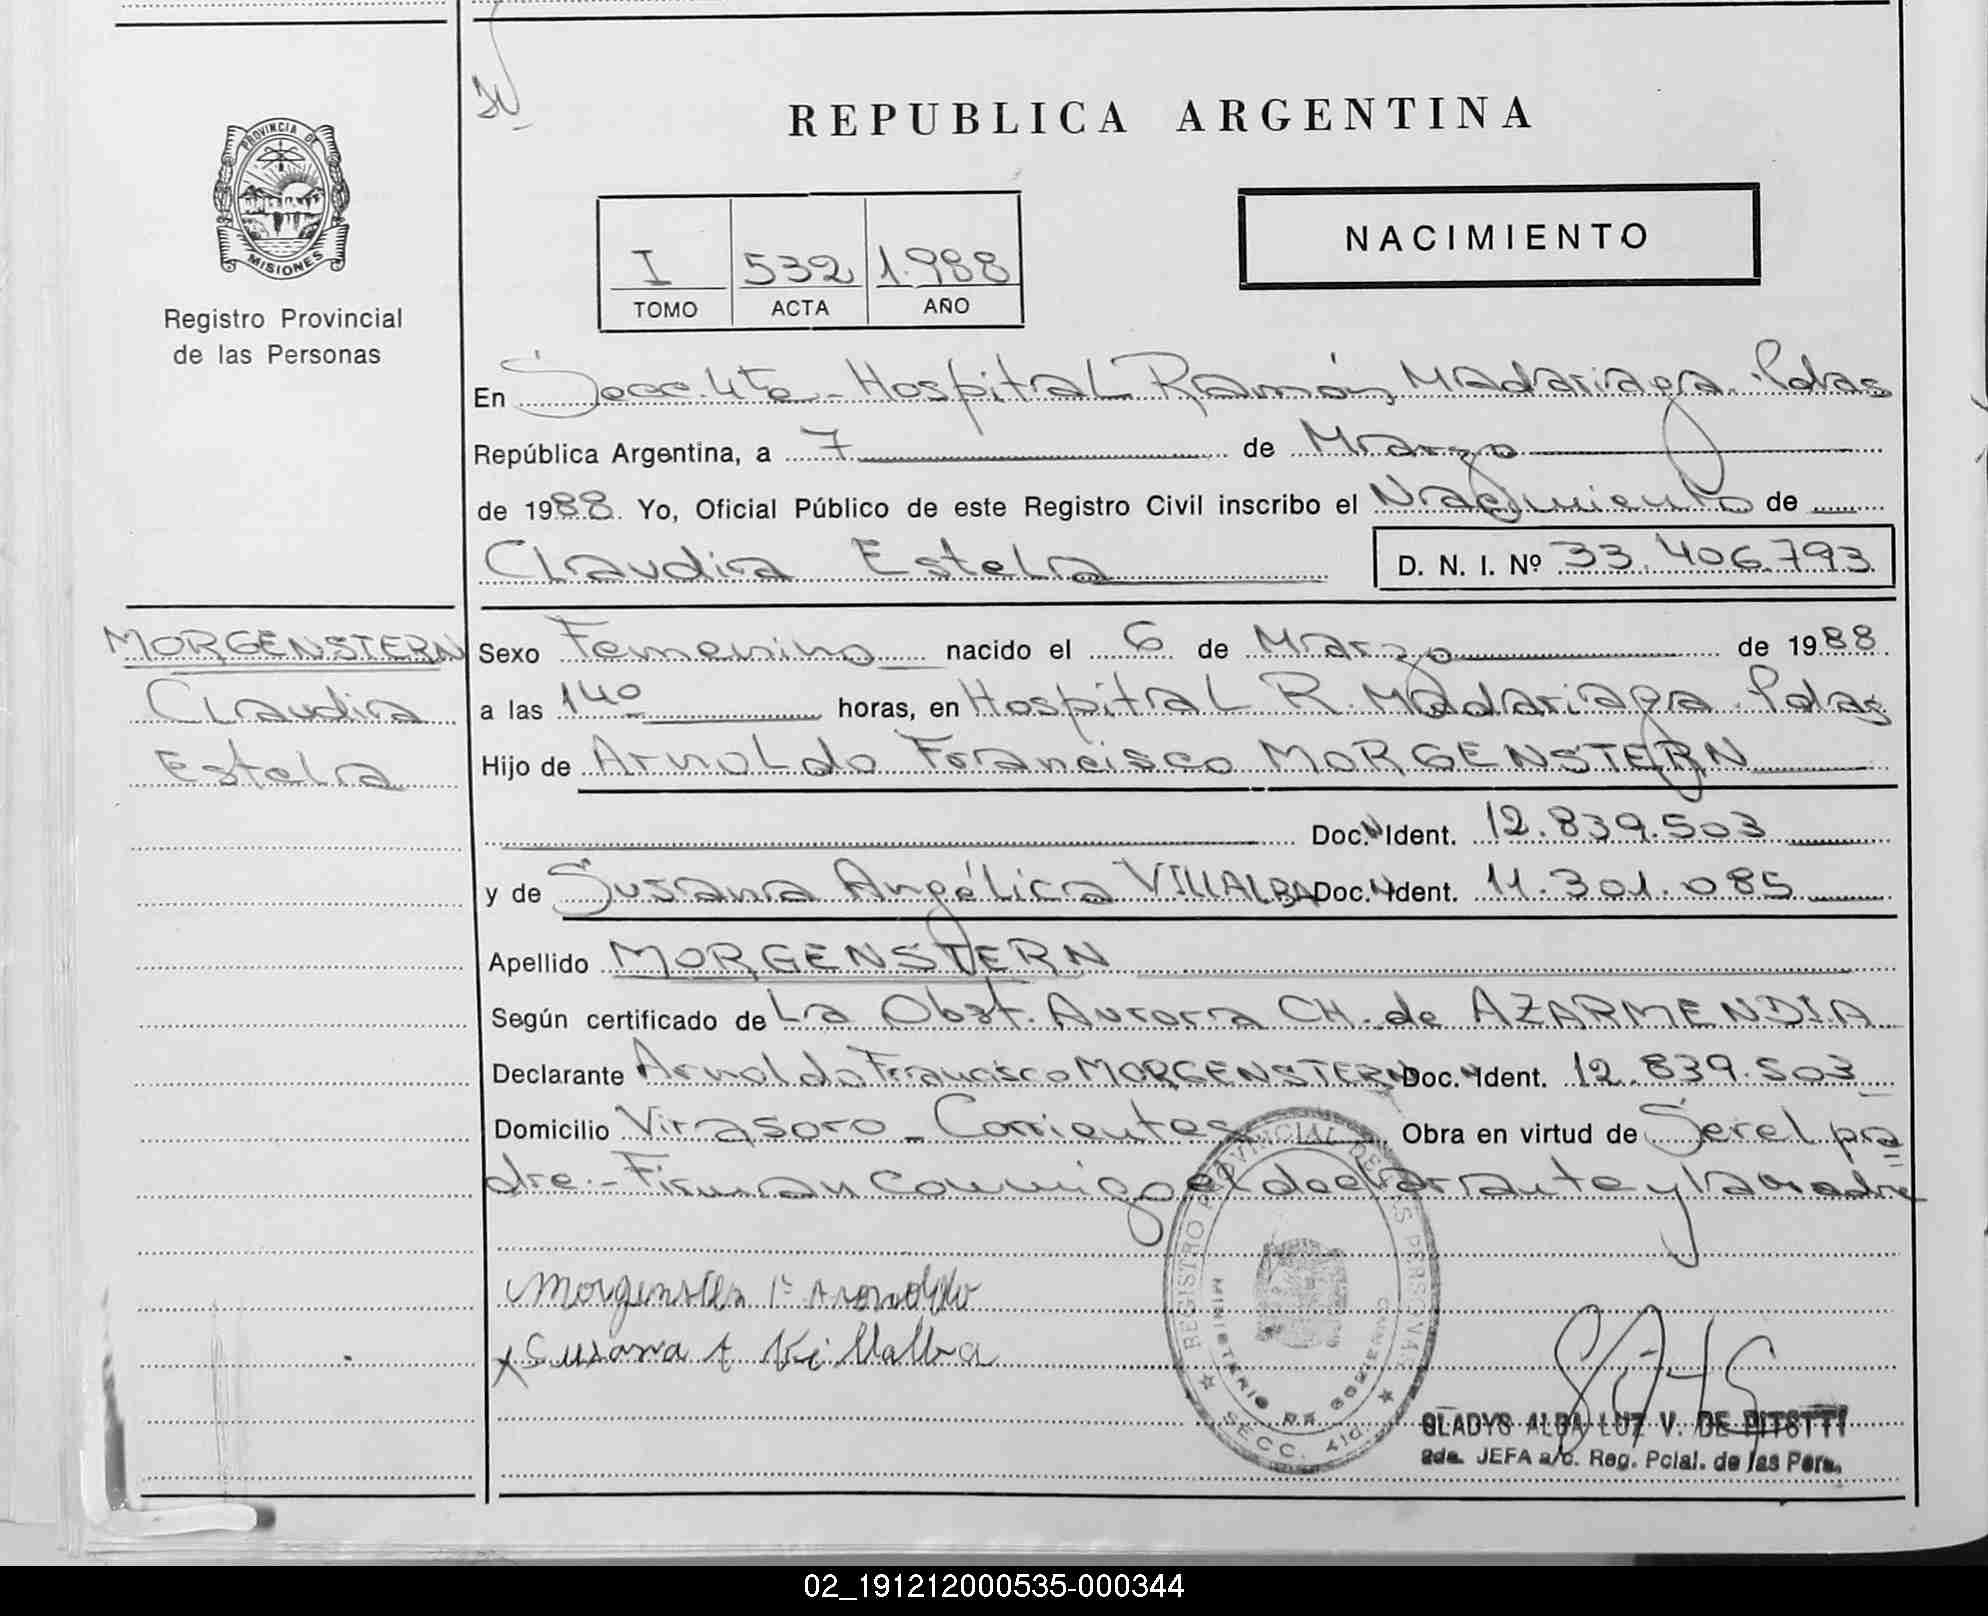 REPUBLICA ARGENTINA
PROVINCIA DE
MISIONES
Registro Provincial
de las Personas
I 532 1.988
TOMO ACTA AÑO
NACIMIENTO
En Secc. 4ta - Hospital Ramón Madariaga. Pdas
República Argentina, a 7 de Marzo
de 1988. Yo, Oficial Público de este Registro Civil inscribo el Nacimiento de
Claudia Estela D. N. I. Nº 33.406.793
MORGENSTERN
Claudia
Estela
Sexo Femenino nacido el 6 de Marzo de 1988.
a las 14º horas, en Hospital R. Madariaga. Pdas
Hijo de Arnoldo Francisco MORGENSTERN
Doc. N Ident. 12.839.503
y de Susana Angélica VILLALBA Doc. N Ident. 11.301.085
Apellido MORGENSTERN
Según certificado de La Obst. Aurora CH. de AZARMENDIA
Declarante Arnoldo Francisco MORGENSTERN Doc. N Ident. 12.839.503
Domicilio Virasoro - Corrientes Obra en virtud de Ser el pa
dre.- Firman conmigo el declarante y la madre
Morgenstern F. Arnoldo
x Susana A Villalba
REGISTRO PROVINCIAL DE LAS PERSONAS
MINISTERIO DE GOBIERNO
SECC. 4ta.
GLADYS ALBA LUZ V. DE
2da. JEFA a/c. Reg. Pcial. de las Pers.
02_191212000535-000344